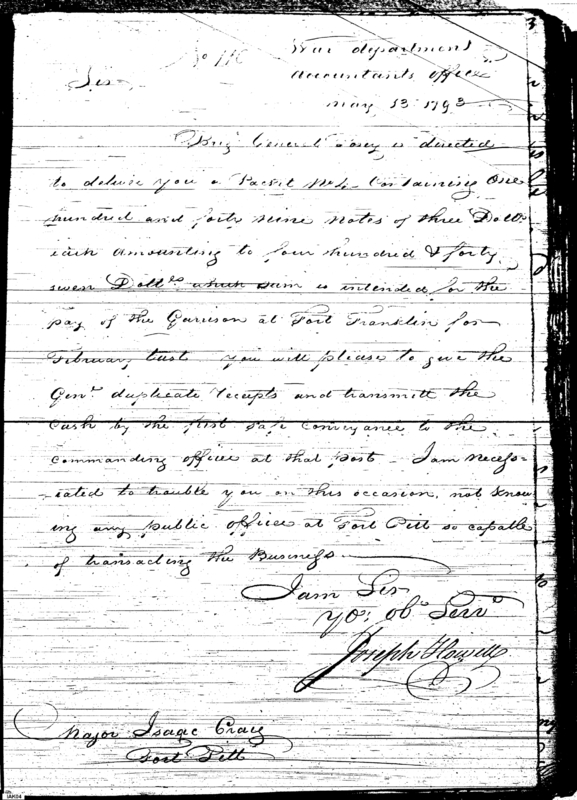 No 110
War department
Accountants office
May 13 1793
Sir
Brig General Posey is directed
to deliver you a Packet No 4 Containing One
hundred and forty nine notes of three Dollrs
each amounting to four hundred & forty
seven Dollrs which sum is intended for the
pay of the Garrison at Fort Franklin for
February last you will please to give the
Genl duplicate receipts and transmitt the
Cash by the first safe Conveyance to the
Commanding officer at that post I am necess-
-iated to trouble you on this occasion, not know
ing any public officer at Fort Pitt so capable
of transacting the Business
I am Sir
Yo. ob. Serv.
Joseph Howell
Major Isaac Craig
Fort Pitt